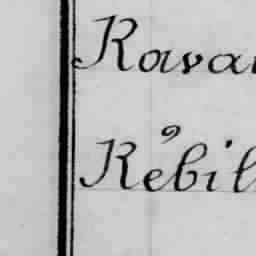 Rava
Rébil